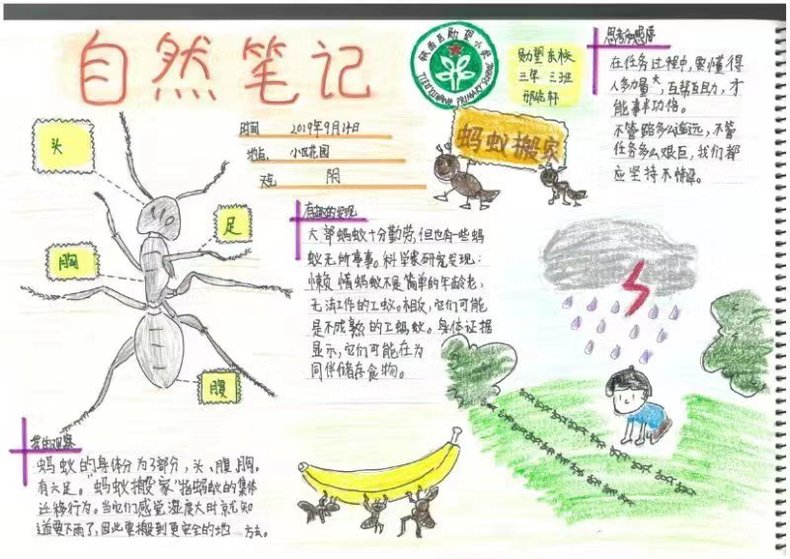 自然笔记
勋望东校
三年三班
时间 2019年9月14日
地点 小区花园
天气 阴
蚂蚁搬家
思考和感悟
在任务过程中,要懂得
人多力量大,互帮互助,才
能事半功倍。
不管路多么遥远,不管
任务多么艰巨,我们都
应坚持不懈。
头
足
胸
腹
有趣的发现
大部蚂蚁十分勤劳,但也有一些蚂
蚁无所事事。科学家研究发现:
懒惰蚂蚁不是简单的年龄老,
无法工作的工蚁。相反,它们可能
是不成熟的工蚂蚁。身体证据
显示,它们可能在为
同伴储存食物。
我的观察
蚂蚁的身体分为3部分,头、腹、胸。
有六足。"蚂蚁搬家"指蚂蚁的集体
迁移行为。当它们感觉湿度大时就知
道要下雨了,因此要搬到更安全的地方去。